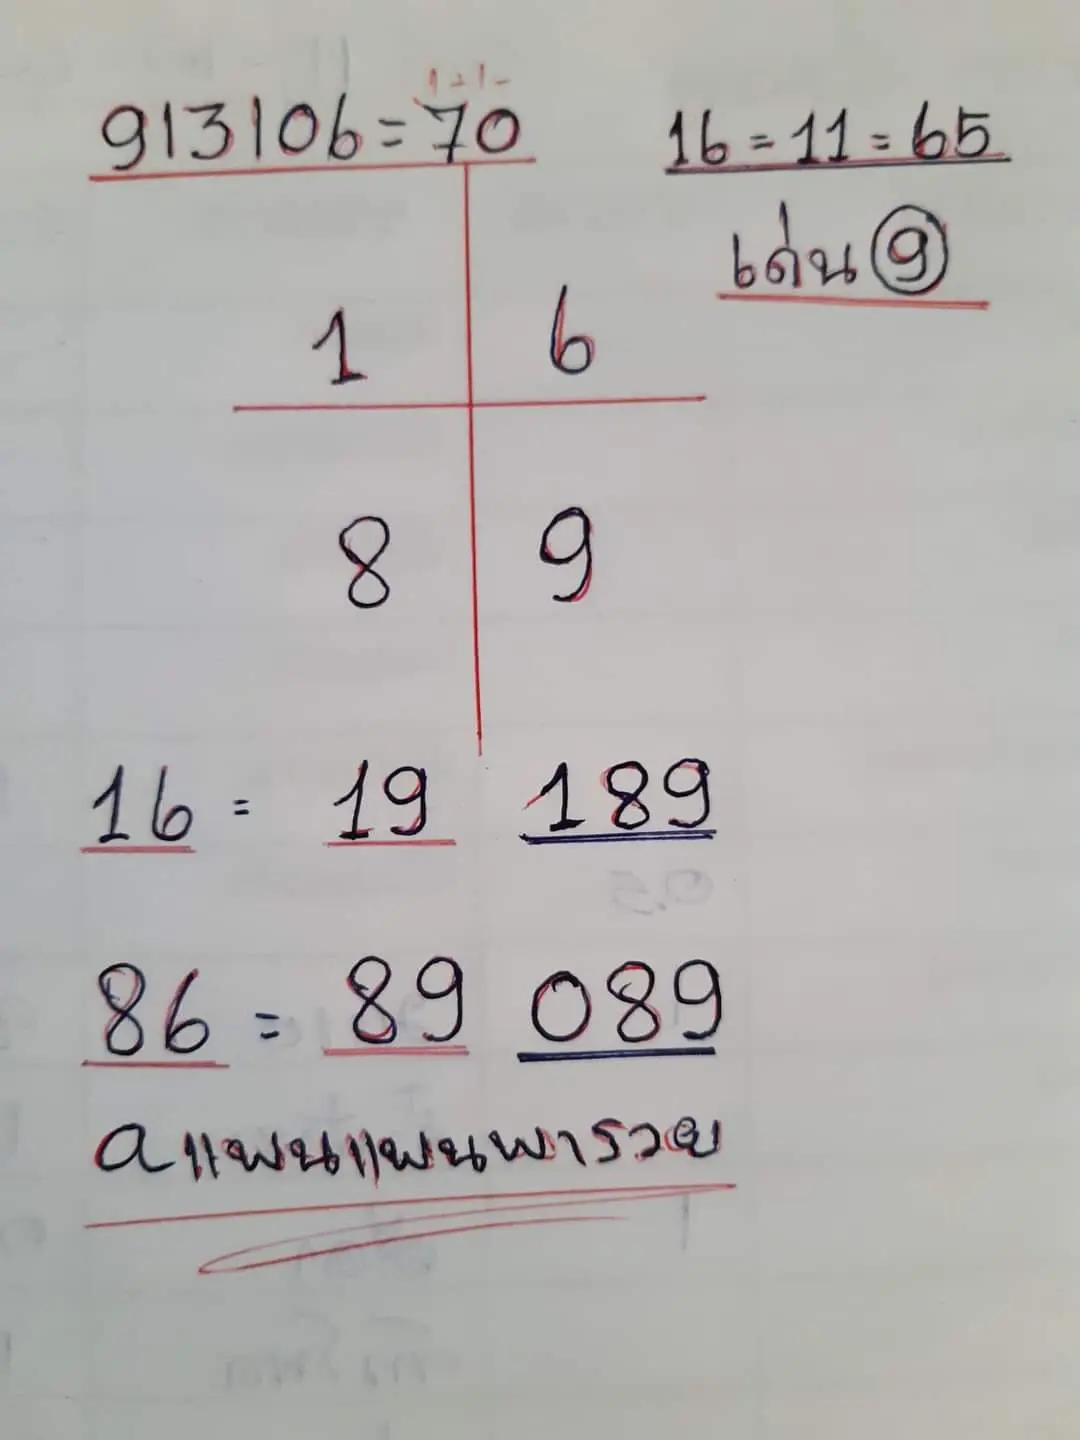 913106=70
16=11=65
เด่น 9
1 6
8 9
16 = 19 189
86 = 89 089
aแฟนแฟนพารวย